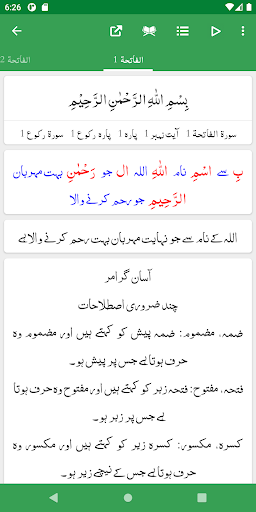 6:26
الفاتحة 1
الفاتحة 2
بِسْمِ اللهِ الرَّحْمٰنِ الرَّحِيْمِ
سورة الفاتحة 1 آیت نمبر 1 پارہ 1 پارہ رکوع 1 سورة رکوع 1
بِ سے اسْمِ نام اللهِ اللہ ال جو رَحْمٰنِ بہت مہربان
الرَّحِيْمِ جو رحم کرنے والا
اللہ کے نام سے جو نہایت مہربان بہت رحم کرنے والا ہے
آسان گرامر
چند ضروری اصطلاحات
ضمہ، مضموم: ضمہ پیش کو کہتے ہیں اور مضموم وہ
حرف ہوتا ہے جس پر پیش ہو۔
فتحہ، مفتوح: فتحہ زبر کو کہتے ہیں اور مفتوح وہ حرف ہوتا
ہے جس پر زبر ہو۔
کسرہ، مکسور: کسرہ زیر کو کہتے ہیں اور مکسور وہ
حرف ہوتا ہے جس کے نیچے زیر ہو۔